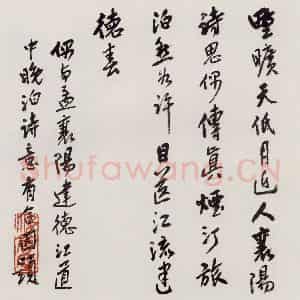 野曠天低月近人襄陽
詩思偶傳真煙汀旅
泊如許目送江流建
德春
偶与孟襄陽建德江道
中晚泊詩意有
Shufawang.CN